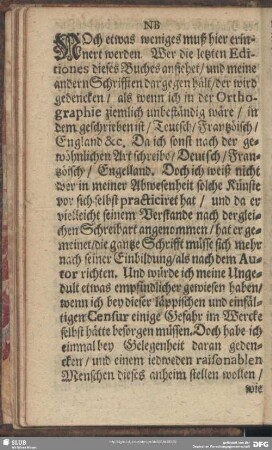 NB
NOch etwas weniges muß hier erin-
nert werden. Wer die letzten Edi-
tiones dieses Buches ansiehet/ und meine
andern Schrifften dargegen hält/ der wird
gedencken/ als wenn ich in der Ortho-
graphie ziemlich unbeständig wäre/ in
dem geschrieben ist/ Teutsch/ Frantzöisch/
England &c. Da ich sonst nach der ge-
wöhnlichen Art schreibe/ Deutsch/ Fran-
tzösch/ Engelland. Doch ich weiß nicht
wer in meiner Abwesenheit solche Künste
vor sich selbst practiciret hat/ und da er
vielleicht seinem Verstande nach dergleit-
chen Schreibart angenommen/ hat er ge-
meinet/ die gantze Schrifft müsse sich mehr
nach seiner Einbildung/ als nach dem Au-
tor richten. Und würde ich meine Unge-
dult etwas empfindlicher gewiesen haben/
wenn ich bey dieser läppischen und einfäl-
tigen Censur einige Gefahr im Wercke
selbst hätte besorgen müssen. Doch habe ich
einmal bey Gelegenheit daran geden-
cken/ und einem iedweden raisonablen
Menschen dieses anheim stellen wollen/
wie
SLUB
DFG